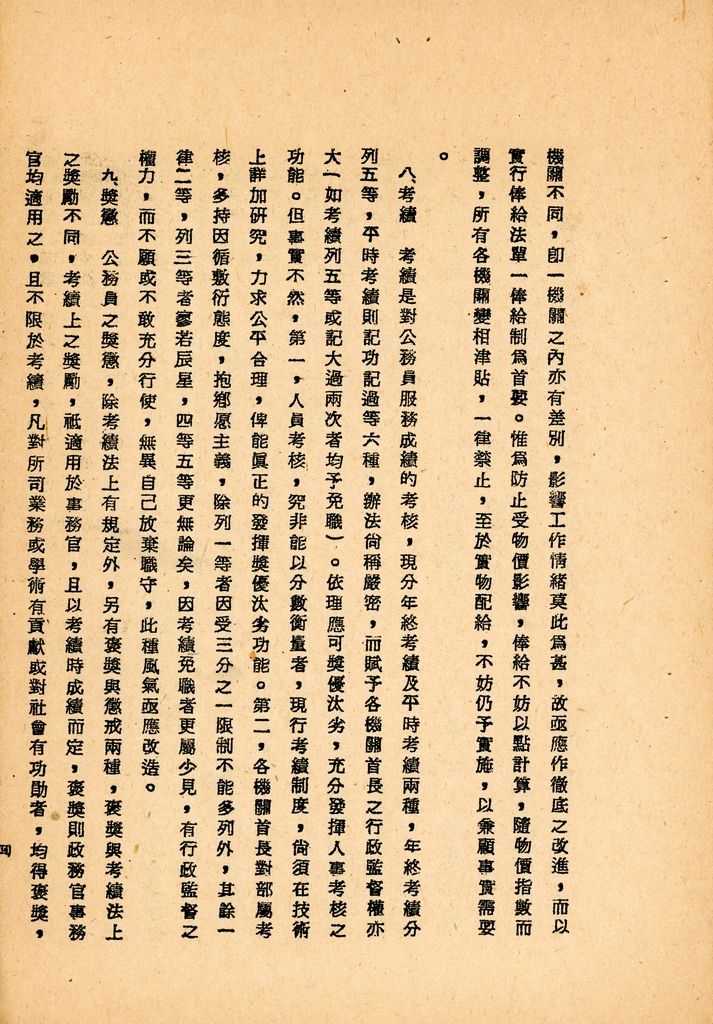 機關不同，卽一機關之內亦有差別，影響工作情緒莫此爲甚，故亟應作徹底之改進，而以
實行俸給法單一俸給制爲首要。惟爲防止受物價影響，俸給不妨以點計算，隨物價指數而
調整，所有各機關變相津貼，一律禁止，至於實物配給，不妨仍予實施，以兼顧事實需要
。
八、考績　考績是對公務員服務成績的考核，現分年終考績及平時考績兩種，年終考績分
列五等，平時考績則記功記過等六種，辦法尙稱嚴密，而賦予各機關首長之行政監督權亦
大（如考績列五等或記大過兩次者均予免職）。依理應可獎優汰劣，充分發揮人事考核之
功能。但事實不然，第一，人員考核，究非能以分數衡量者，現行考績制度，尙須在技術
上詳加研究，力求公平合理，俾能眞正的發揮獎優汰劣功能。第二，各機關首長對部屬考
核，多持因循敷衍態度，抱鄉愿主義，除列一等者因受三分之一限制不能多列外，其餘一
律二等，列三等者寥若辰星，四等五等更無論矣，因考績免職者更屬少見，有行政監督之
權力，而不願或不敢充分行使，無異自己放棄職守，此種風氣亟應改造。
九、獎懲　公務員之獎懲，除考績法上有規定外，另有褒獎與懲戒兩種，褒獎與考績法上
之獎勵不同，考績上之獎勵，祗適用於事務官，且以考績時成績而定，褒獎則政務官事務
官均適用之。且不限於考績，凡對所司業務或學術有貢獻或對社會有功勛者，均得褒獎，
四